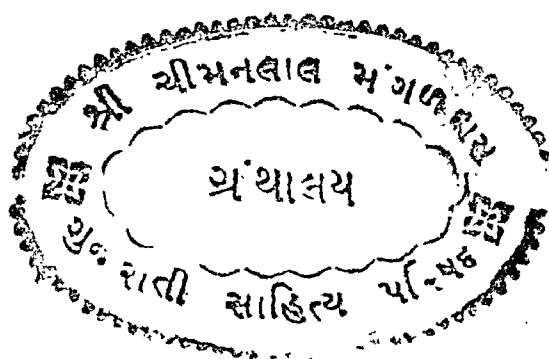 શ્રી ચીમનલાલ મંગળદાસ
ગ્રંથાલય
ગુજરાતી સાહિત્ય પરિષદ